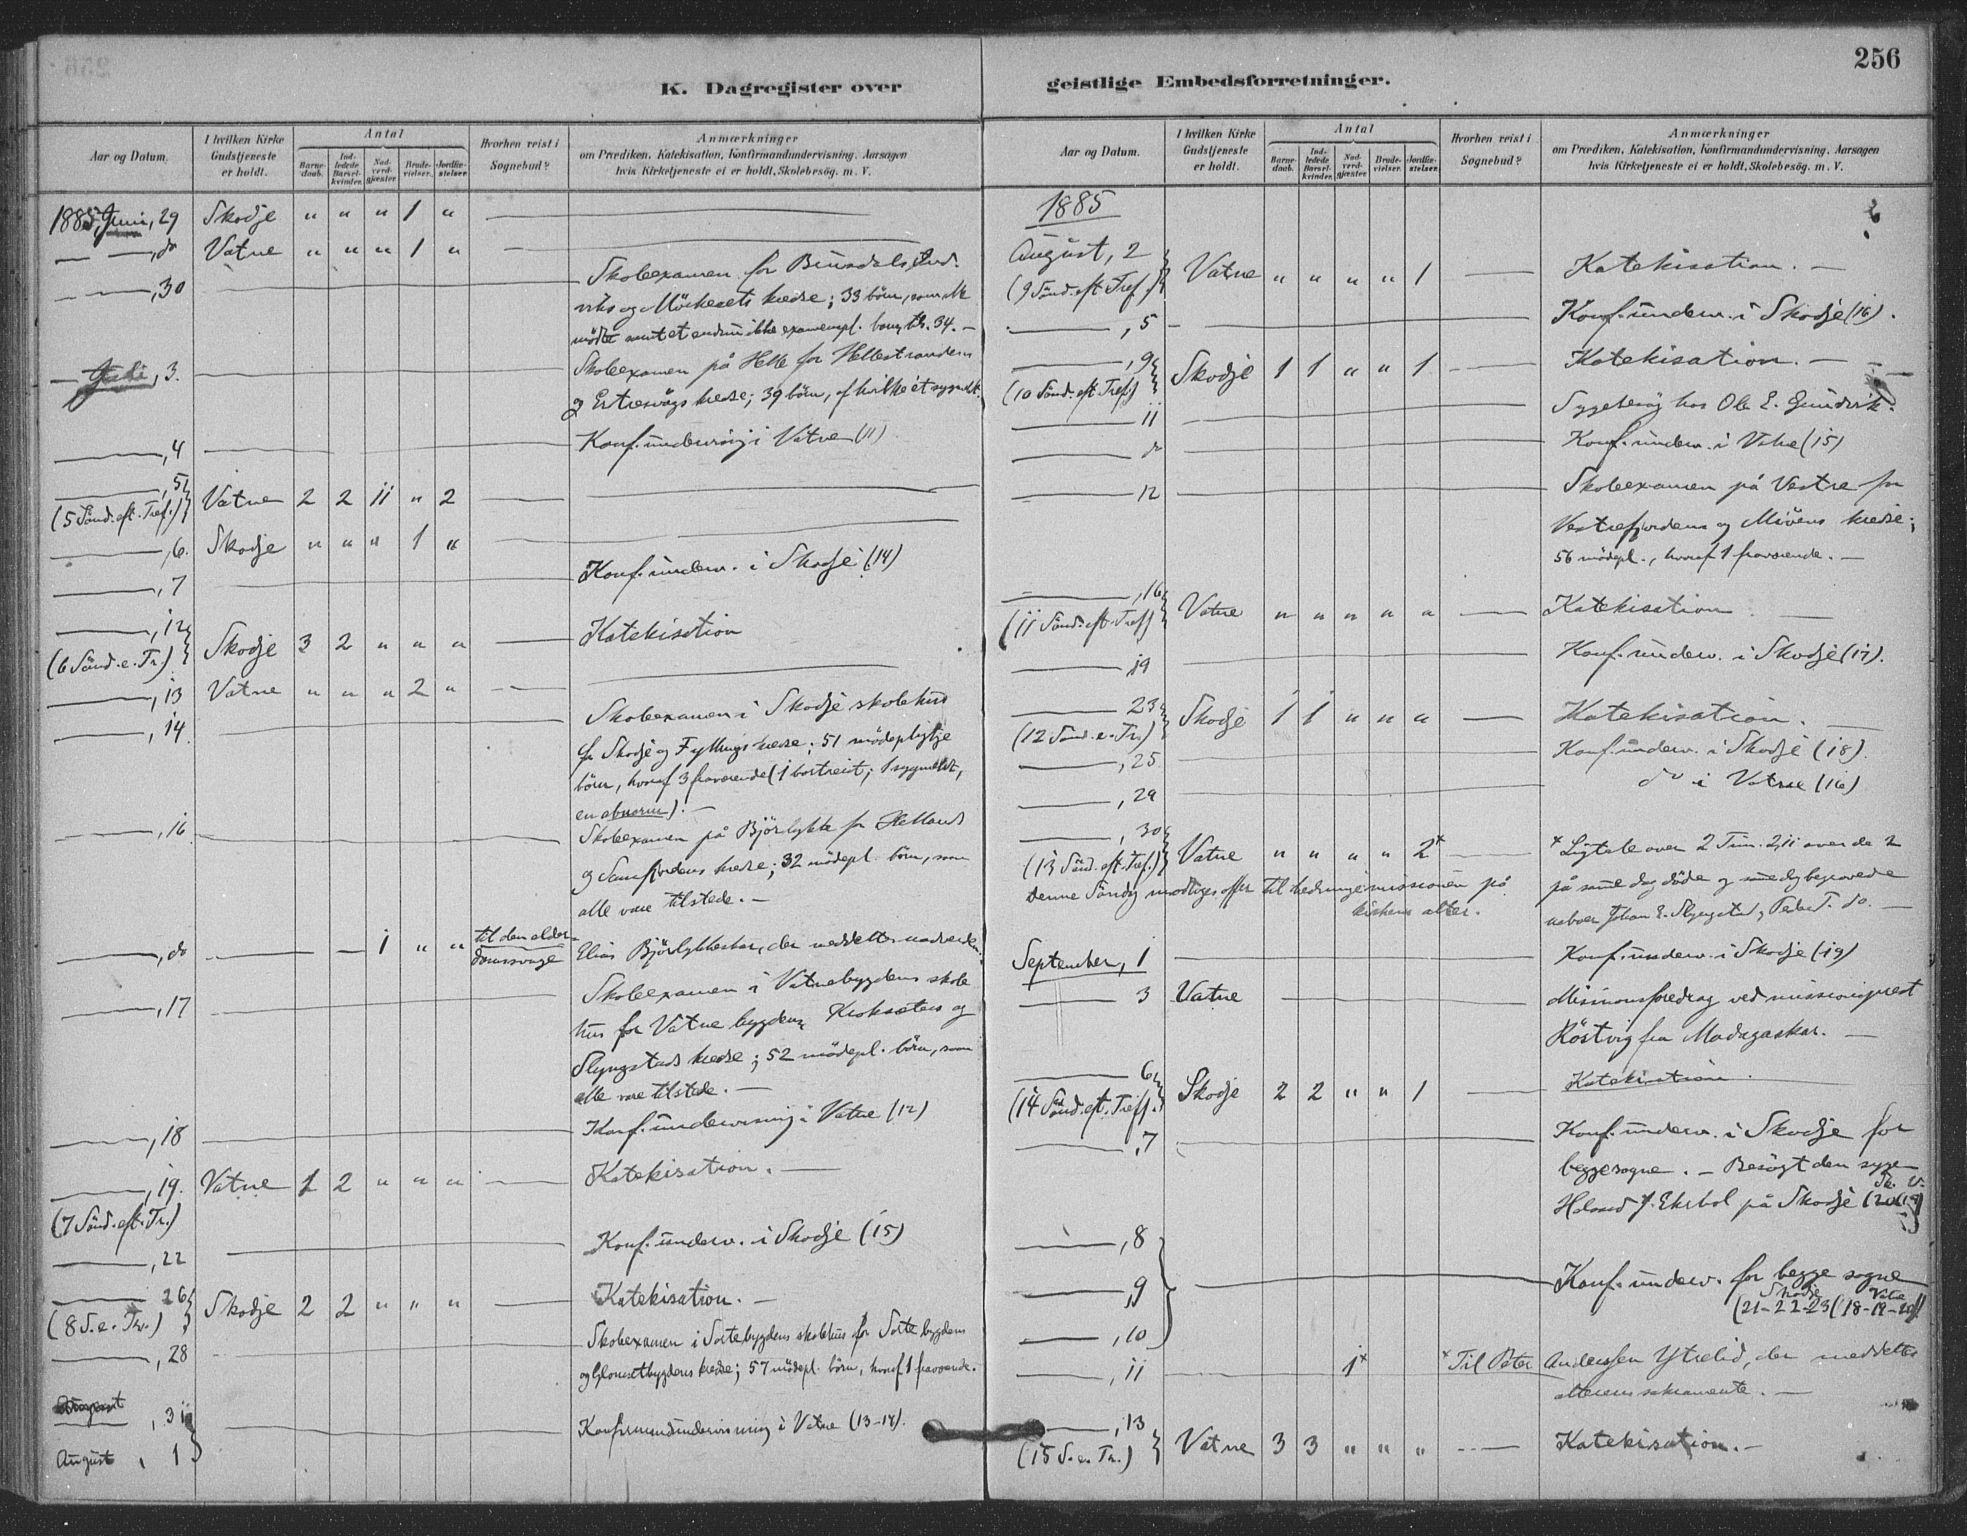 256
K. Dagregister over
Aar og Datum.
I hvilken Kirke Gudstjeneste er holdt.
Antal
Barne-daab.
Ind-ledede Barsel-kvinder.
Nad-verd-gjæster.
Brude-vielser.
Jordfæ-stelser.
Hvorhen reist i Sognebud?
Anmærkninger
om Prædiken, Katekisation, Konfirmandundervisning, Aarsagen
hvis Kirketjeneste ei er holdt, Skolebesøg. m. V.
1885, Juni, 29 Skodje " " " 1 "
do Vatne " " " 1 "
, 30 Skoleexamen for
og kredse; 33 börn, som
mödte 34. –
Juli, 3. Skoleexamen på Helle for Hellestrandens
og kredse; 39 börn, af hvilke ét
, 4 Konf. underv. i Vatne (11)
, 5
(5 Sönd. eft. Tref.) Vatne 2 2 11 " 2
, 6. Skodje " " " 1 "
, 7 Konf. underv. i Skodje (14)
, 12
(6 Sönd. e. Tr.) Skodje 3 2 " " " Katekisation
, 13 Vatne " " " 2 "
, 14 Skoleexamen i Skodje skolehus
for Skodje og Fyllings kredse; 51 mödepligtige
börn, hvoraf 3 fraværende (1 bortreist; 1 sygmeldt,
en abnorm). –
, 16 Skoleexamen på Björlykke for Hellands
og kredse; 32 mödepl. börn, som
alle vare tilstede. –
, do 1 " " til den alder-
domssvage Elias Björlykkes der meddeltes
, 17 Skoleexamen i Vatnebygdens skole
hus for Vatnebygdens, og
Slyngstads kredse; 52 mödepl. börn, som
alle vare tilstede. –
, 18 Konf. undervisning i Vatne (12)
, 19. Vatne 1 2 " " " Katekisation. –
(7 Sönd. eft. Tr.)
, 22 Konf. underv. i Skodje (15)
26
(8 S. e. Tr.) Skodje 2 2 " " " Katekisation. –
, 28 Skoleexamen i Sortebygdens skolehus for Sortebygdens
og kredse; 57 mödepl. börn, hvoraf 1 fraværende.
August
, 31 Konfirmandundervisning i Vatne (13-14).
August, 1
geistlige Embedsforretninger.
Aar og Datum.
I hvilken Kirke Gudstjeneste er holdt.
Antal
Barne-daab.
Ind-ledede Barsel-kvinder.
Nad-verd-gjæster.
Brude-vielser.
Jordfæ-stelser.
Hvorhen reist i Sognebud?
Anmærkninger
om Prædiken, Katekisation, Konfirmandundervisning, Aarsagen
hvis Kirketjeneste ei er holdt, Skolebesøg. m. V.
1885
August, 2
(9 Sönd. eft. Tref.) Vatne " " " " 1 Katekisation. –
, 5 Konf. underv. i Skodje (16).
, 9
(10 Sönd. eft. Tref.) Skodje 1 1 " " 1 Katekisation. –
11 Sygebesög hos Ole E.
do Konf. underv. i Vatne (15)
, 12 Skoleexamen på Vestre for
Vestrefjordens og kredse;
56 mödepl., hvoraf 1 fraværende. –
, 16
(11 Sönd. eft. Tref.) Vatne " " " " " Katekisation
, 19 Konf. underv. i Skodje (17).
23
(12 Sönd. e. Tr.) Skodje 1 1 " " " Katekisation. –
, 25 Konf. underv. i Skodje (18).
, 29 do i Vatne (16)
, 30
(13 Sönd. eft. Tref.) Vatne " " " " 2* * Ligtale over 2 Tim. 2, 11 over de 2
på samme dag döde og samme dag begravede
naboer Johan E. Slyngstad, Peder T. do. –
Denne Söndag modtoges offer til hedningemissionen på
kirkens alter.
September, 1 Konf. underv. i Skodje (19)
3 Vatne Missionsforedrag ved missionsprest
Röstvig fra Madagaskar. –
6
(14 Sönd. eft. Tref.) Skodje 2 2 " " 1 Katekisation
, 7 Konf. underv. i Skodje for
begge sogne. – Besögt den syge
på Skodje
, 8
, 9 Konf. underv. for begge sogne
Skodje Vatne
(21-22-23) (18-19-20)
, 10
, 11 1* * Til Peter Anderssen Ytrelid, der meddeltes
alterens sakramente. –
, 13
(15 S. e. Tr.) Vatne 3 3 " " " Katekisation. –